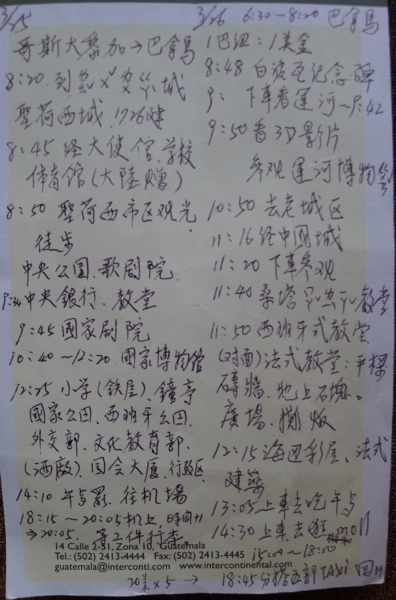 3/25
哥斯大黎加→巴拿馬
8:20
聖荷西城, 1726建
8:45 經大使館.学校
体育館(大陸贈)
8:50 聖荷西市区观光
徒步
中央公園.歌剧院.
9:30 中央銀行.教堂
9:45 國家剧院
10:40~12:20 國家博物館
12:25 小学(鉄屋).鐘亭
國家公园.西班牙公园.
外交部.文化教育部.
(酒廠).国会大厦.行政区
14:10 午歺畢.往机場
18:15~20:05机上, 時間+1
→20:05. 等工件行李.
14 Calle 2-51, Zona 10, Guatemala
Tel.: (502) 2413-4444 Fax: (502) 2413-4445
guatemala@interconti.com www.intercontinental.com
20美×5 →
3/26 6:30-8:20 巴拿馬
1巴纽:1美金
8:48 紀念碑
9: 下車看運河~9:42
9:50 看3D影片
參观運河博物館
10:50 去老城区
11:16 經中國城
11:20 下車參观
11:40 桑塔 教堂
11:50 西班牙式教堂
(对面)法式教堂:平樑
磚牆.地上石塊.
廣場.擲飯
12:15 海边彩屋、法式
建築
13:05 上車去吃午歺
14:30 上車去逛 moll
15:00~18:00
18:45 分搭五部TAXi 回